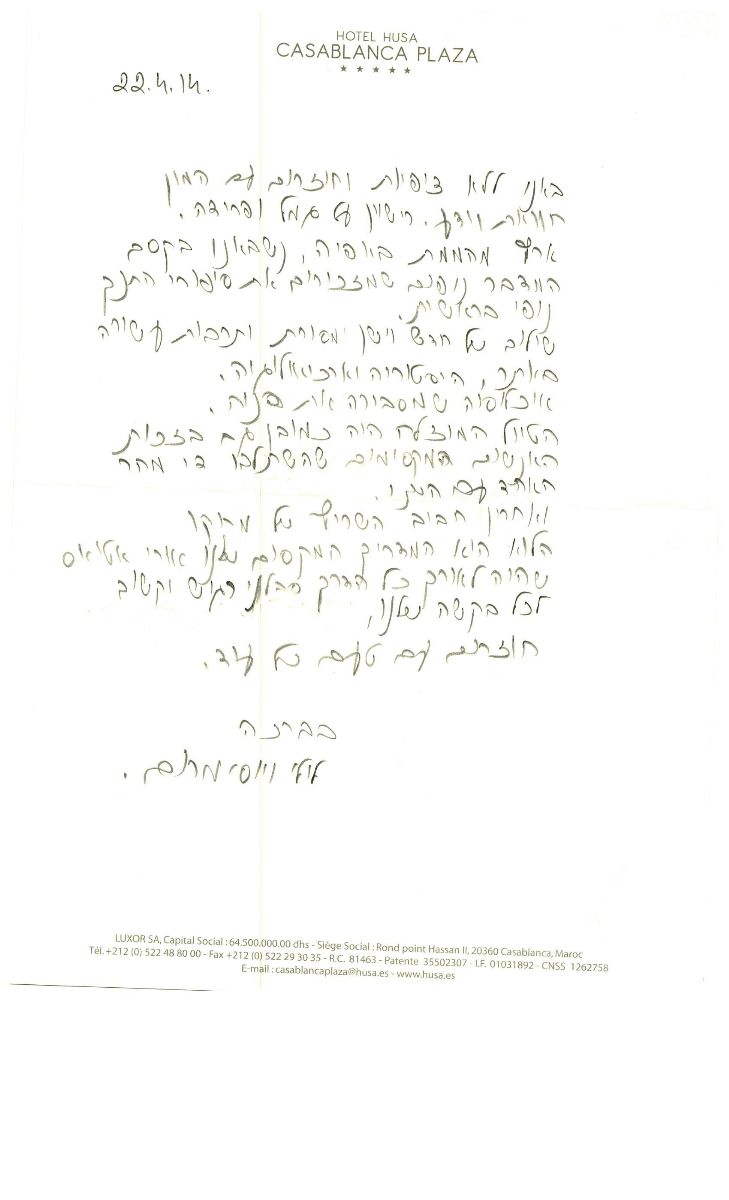 HOTEL HUSA
CASABLANCA PLAZA
★ ★ ★ ★ ★
22.4.14.
באנו ללא ציפיות וחוזרים עם המון
חוויות וידע. רישיון על גמל ופרידה.
ארץ מהממת ביופיה, נשבאנו בקסם
המדבר נופים שמזכירים את סיפורי התנך
נופי בראשית.
שילוב של חדש וישן מסורת ותרבות עשורה
באתר, היסטוריה וארכיאולוגיה.
שמסבירה את
הטיול המוצלח היה כמובן גם בזכות
האנשים המקסימים שהשתלבו די מהר
האחד עם השני.
ואחרון חביב השריף של מרוקו
הלוא הוא המדריך המקסים שלנו אורי אטיאס
שהיה לאורך כל הדרך סבלני רגיש וקשוב
לכל בקשה שלנו,
חוזרים עם טעם של עוד.
בברכה
לילי ויוסי מרום.
LUXOR SA, Capital Social : 64.500.000.00 dhs - Siège Social : Rond point Hassan II, 20360 Casablanca, Maroc
Tél. +212 (0) 522 48 80 00 - Fax +212 (0) 522 29 30 35 - R.C. 81463 - Patente 35502307 - I.F. 01031892 - CNSS 1262758
E-mail : casablancaplaza@husa.es - www.husa.es